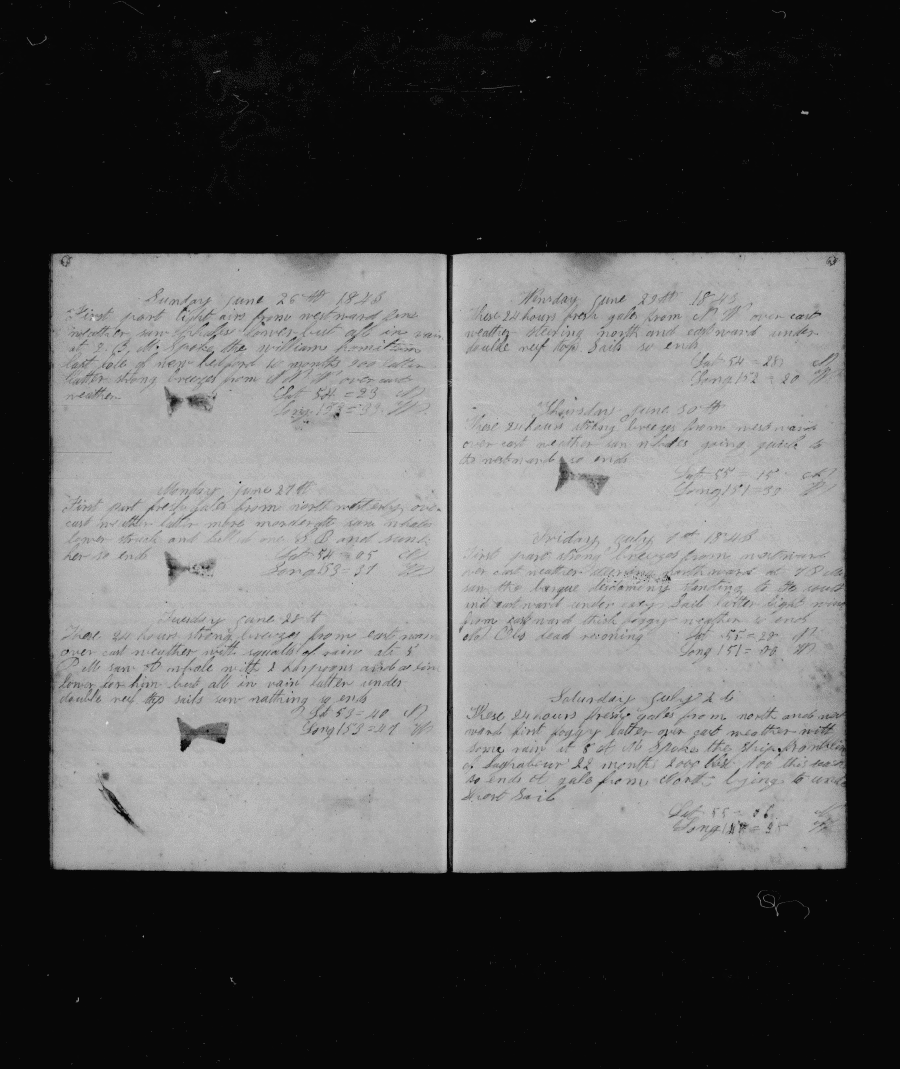 Sunday June 26th 1848
First part light airs from westward fine
weather saw whales lower but all in vain
at 2 P M Spoke the william
last bale of new bedford 10 months 900
latter strong breezes from over cast
weather Lat 54=23 N
Long 153=33 W
Monday june 27th
First part fresh gales from north westerly over
cast weather latter more moderate saw whales
lower struck and killed one and sunk
her so ends Lat 54=05 N
Long 153=31 W
Tuesday june 28th
These 24 hours strong breezes from eastward
over cast weather with squalls of rain at 5
P M saw A whale with 2 and
lower for him but all in vain latter under
double reef top sails saw nathing so ends
Lat 53=40 N
Long 153=47 W
Wensday june 29th 1848
These 24 hours fresh gales from N W over cast
weather steering north and eastward under
double reef top Sails so ends
Lat 54=28 N
Long 152=20 W
Thursday june 30th
These 24 hours strong breezes from westward
over cast weather saw whales going quick to
the westward so ends
Lat 55=15 N
Long 151=33 W
Friday july 1st 1848
First part strong breezes from westward
over cast weather steering northward at 7 P M
saw the barque standing to the south
and eastward under easy Sail latter light winds
from eastward thick foggy weather so ends
Lat 55=28 N
Long 151=00 W
Saturday july 2
These 24 hours fresh gales from north and
ward first foggy latter over cast weather with
some rain at 5 P M Spoke the Ship
of Sagharbour 22 months 2000 bbls 100 this season
so ends A gale from North lying to under
Short Sail
Lat 55 N
Long W